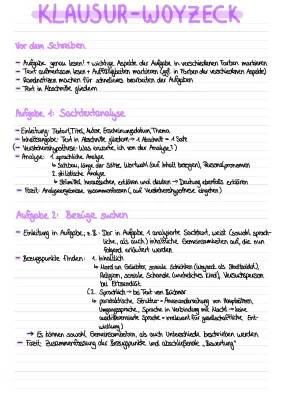 KLAUSUR-WOYZECK
Vor dem Schreiben
- Aufgabe genau lesen! + wichtige Aspekte der Aufgabe in verschiedenen Farben markieren
- Text aufmerksam lesen + Auffälligkeiten markieren (ggf. in Farben der verschiedenen Aspekte)
- Randnotizen machen für schnelleres bearbeiten der Aufgaben
- Text in Abschnitte gliedern
Aufgabe 1: Sachtextanalyse
- Einleitung: Textart, Titel, Autor, Erscheinungsdatum, Thema
- Inhaltsangabe: Text in Abschnitte gliedern → 1 Abschnitt = 1 Satz
(- Verstehenshypothese: Was erwarte ich von der Analyse?)
- Analyse: 1. sprachliche Analyse
↳ Satzbau, länge der Sätze, Wortwahl (auf Inhalt beziegen), Personalpronomen
2. stilistische Analyse
↳ Stilmittel heraussuchen, erklären und deuten → Deutung ebenfalls erklären
- Fazit: Analyseergebnisse zusammenfassen (, auf Verstehenshypothese eingehen)
Aufgabe 2: Bezüge suchen
- Einleitung in Aufgabe, z.B.: Der in Aufgabe 1 analysierte Sachtext, weist (sowohl sprach-
liche, als auch) inhaltliche Gemeinsamkeiten auf, die nun
folgend erläutert werden
- Bezugspunkte finden: 1. Inhaltlich
↳ Mord an Geliebter, soziale Schichten (Woyzeck als Stadtsoldat),
Religion, soziale Schande (uneheliches Kind), Versuchsperson
bei Erbsendiät
(2. Sprachlich → bei Text von Büchner
↳ parataktische Struktur = Aneinanderreihung von Hauptsätzen,
Umgangssprache, Sprache in Verbindung mit Macht → keine
ausdifferenzierte Sprache = irrelevant für gesellschaftliche Ent-
wicklung)
→ Es können sowohl Gemeinsamkeiten, als auch Unterschiede beschrieben werden
- Fazit: Zusammenfassung der Bezugspunkte und abschließende „Bewertung"